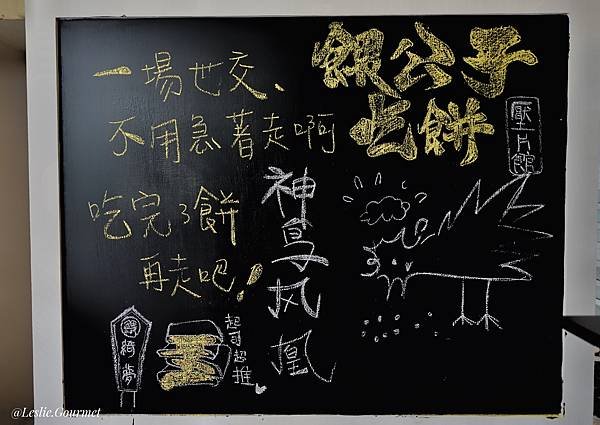 一場世交、
不用急著走啊
吃完了餅
再走吧！
餓公子
吃餅
壓片館
神鳥风凰
國
綺
夢
王
超司超推
@Leslie.Gourmet